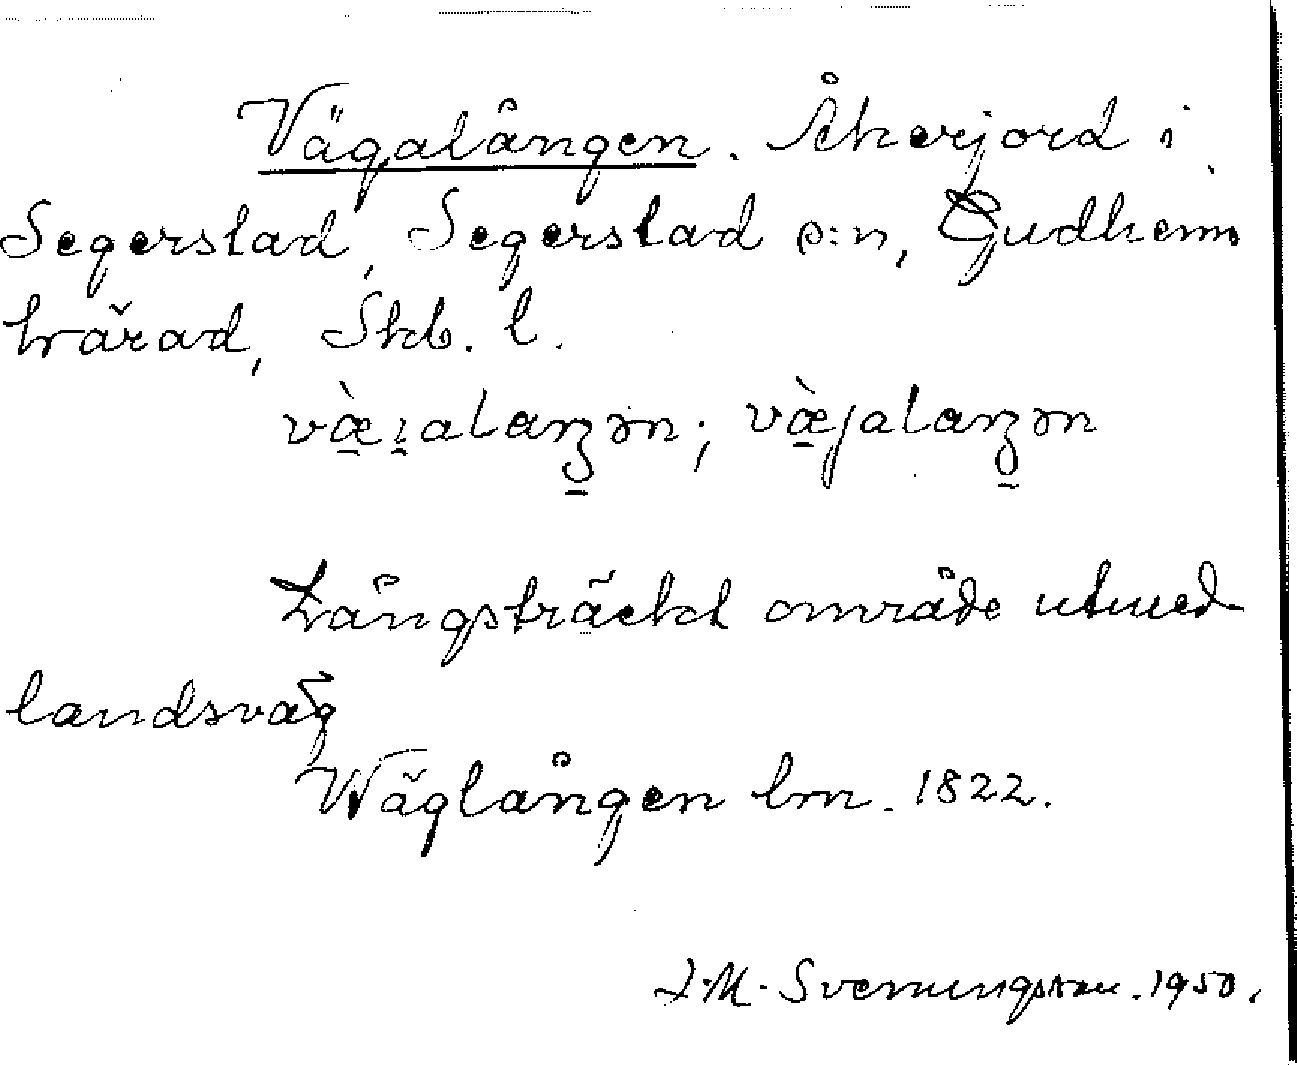 Vägalången. Åkerjord i
Segerstad, Segerstad s:n, Gudhems
härad, Skb. l.
Långsträckt område utmed
landsväg
Wäglången lm. 1822.
J.M. Svenungsson. 1950.